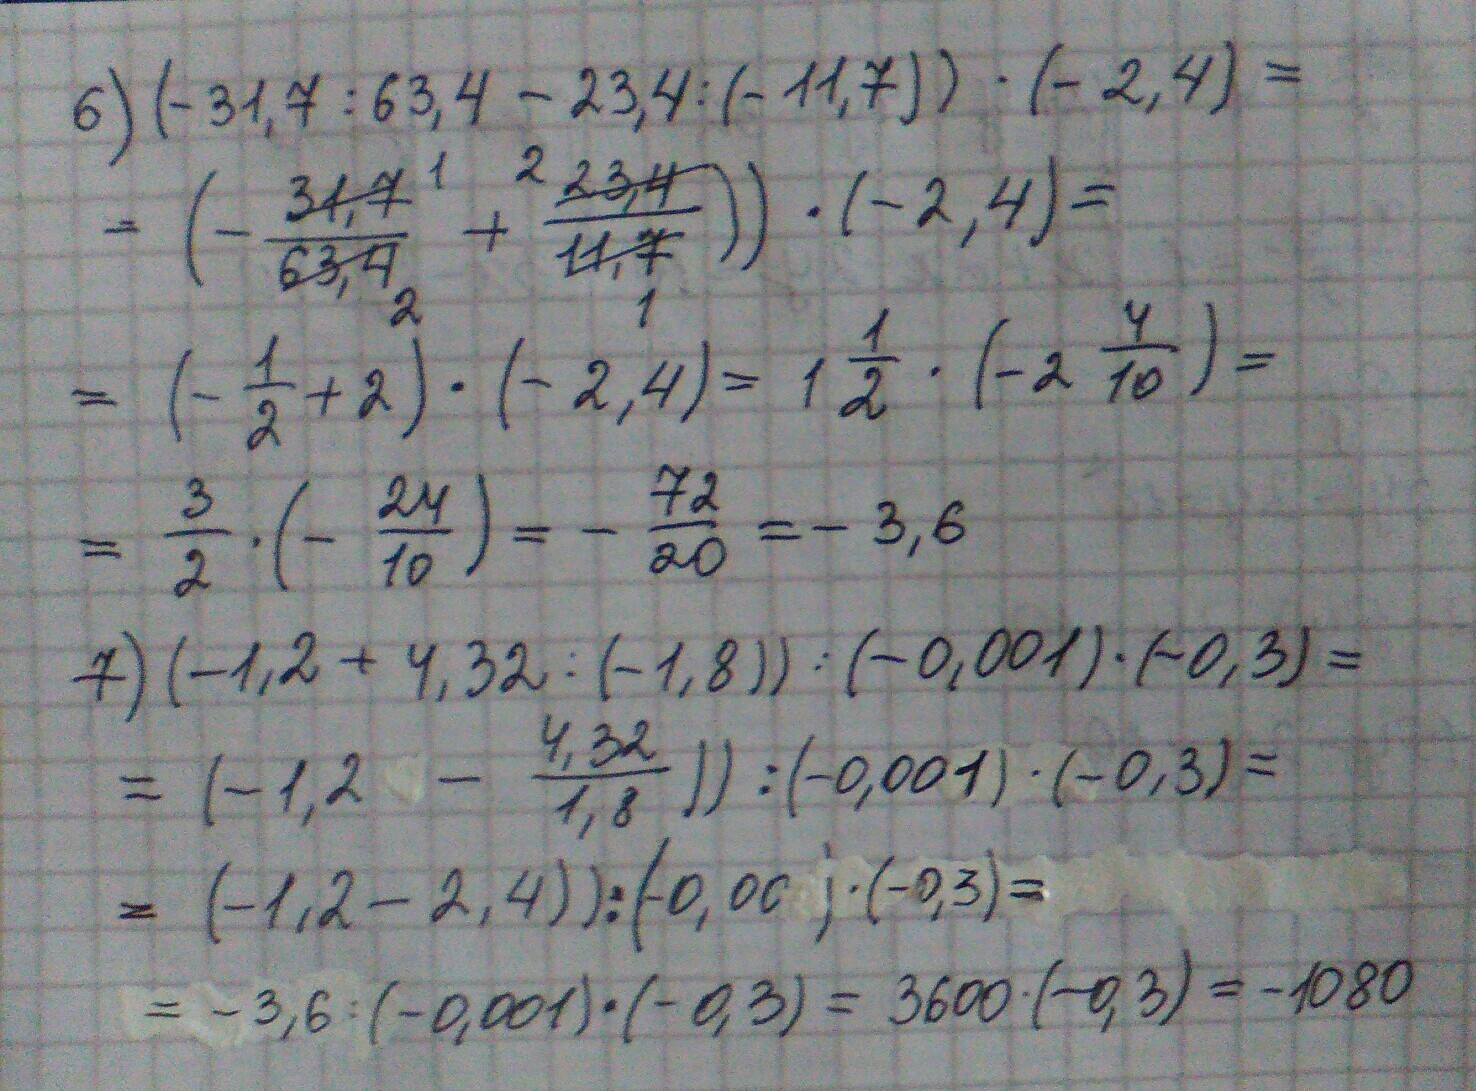 6) (-31,7 : 63,4 - 23,4 : (-11,7)) · (-2,4) =
= (- 31,7/63,4 1 2 + 2 23,4/11,7 1 )) · (-2,4) =
= (- 1/2 + 2) · (-2,4) = 1 1/2 · (-2 4/10) =
= 3/2 · (- 24/10) = - 72/20 = - 3,6
7) (-1,2 + 4,32 : (-1,8)) : (-0,001) · (-0,3) =
= (-1,2 - 4,32/1,8 )) : (-0,001) · (-0,3) =
= (-1,2 - 2,4)) : (-0,00 ) · (-0,3) =
= -3,6 : (-0,001) · (-0,3) = 3600 · (-0,3) = -1080